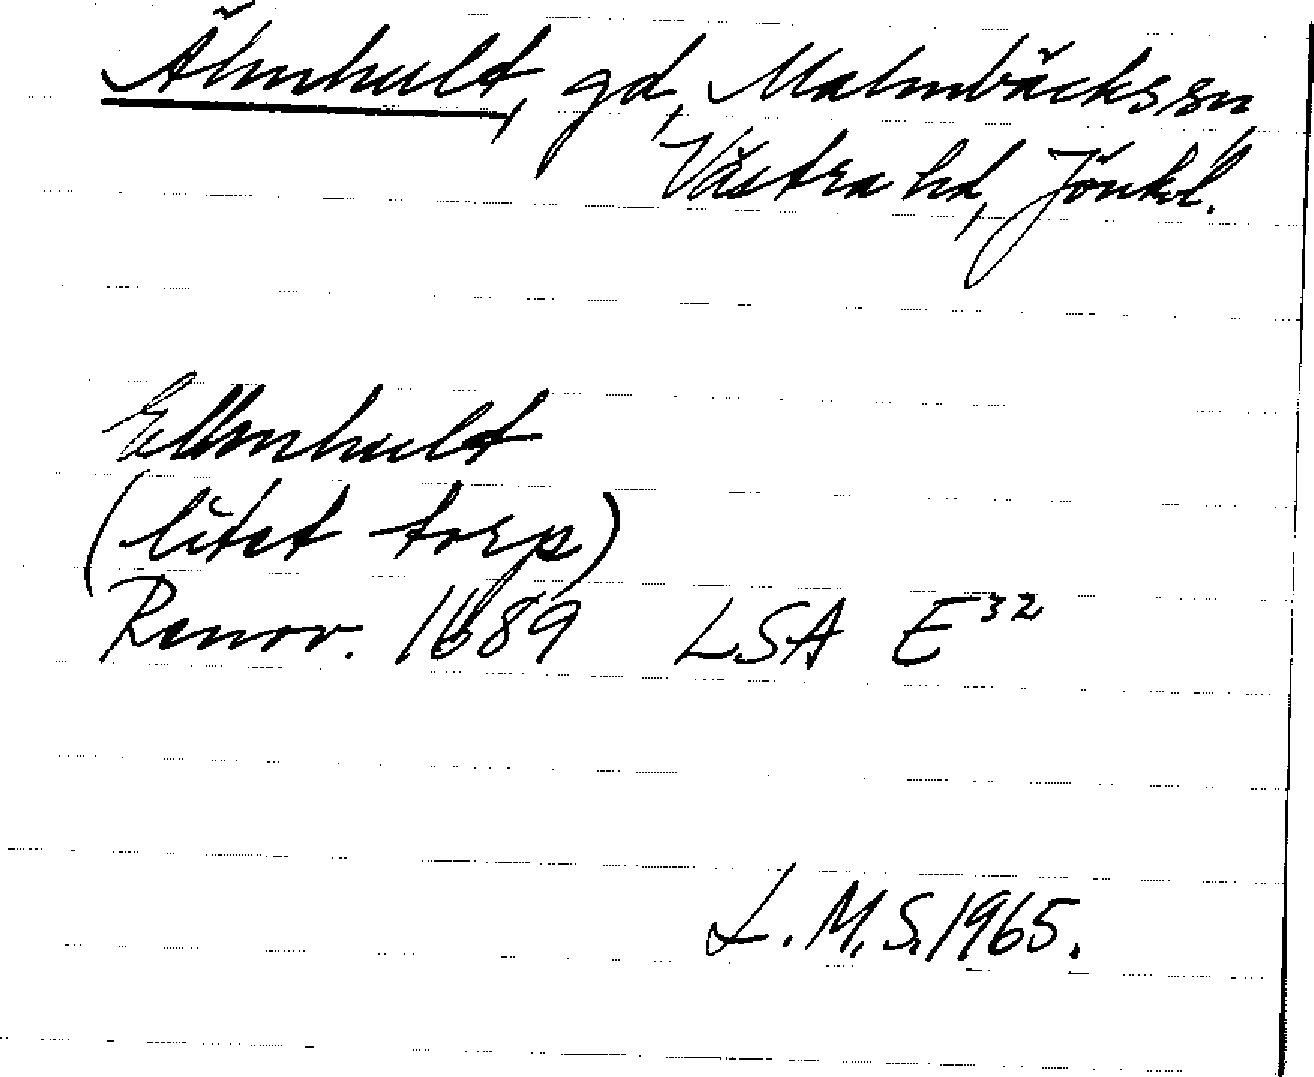 Älmhult, gd, Malmbäcks sn
Västra hd, Jönk.l.
Ellmhult
(litet torp)
Renov. 1689 LSA E³²
L.M.S. 1965.